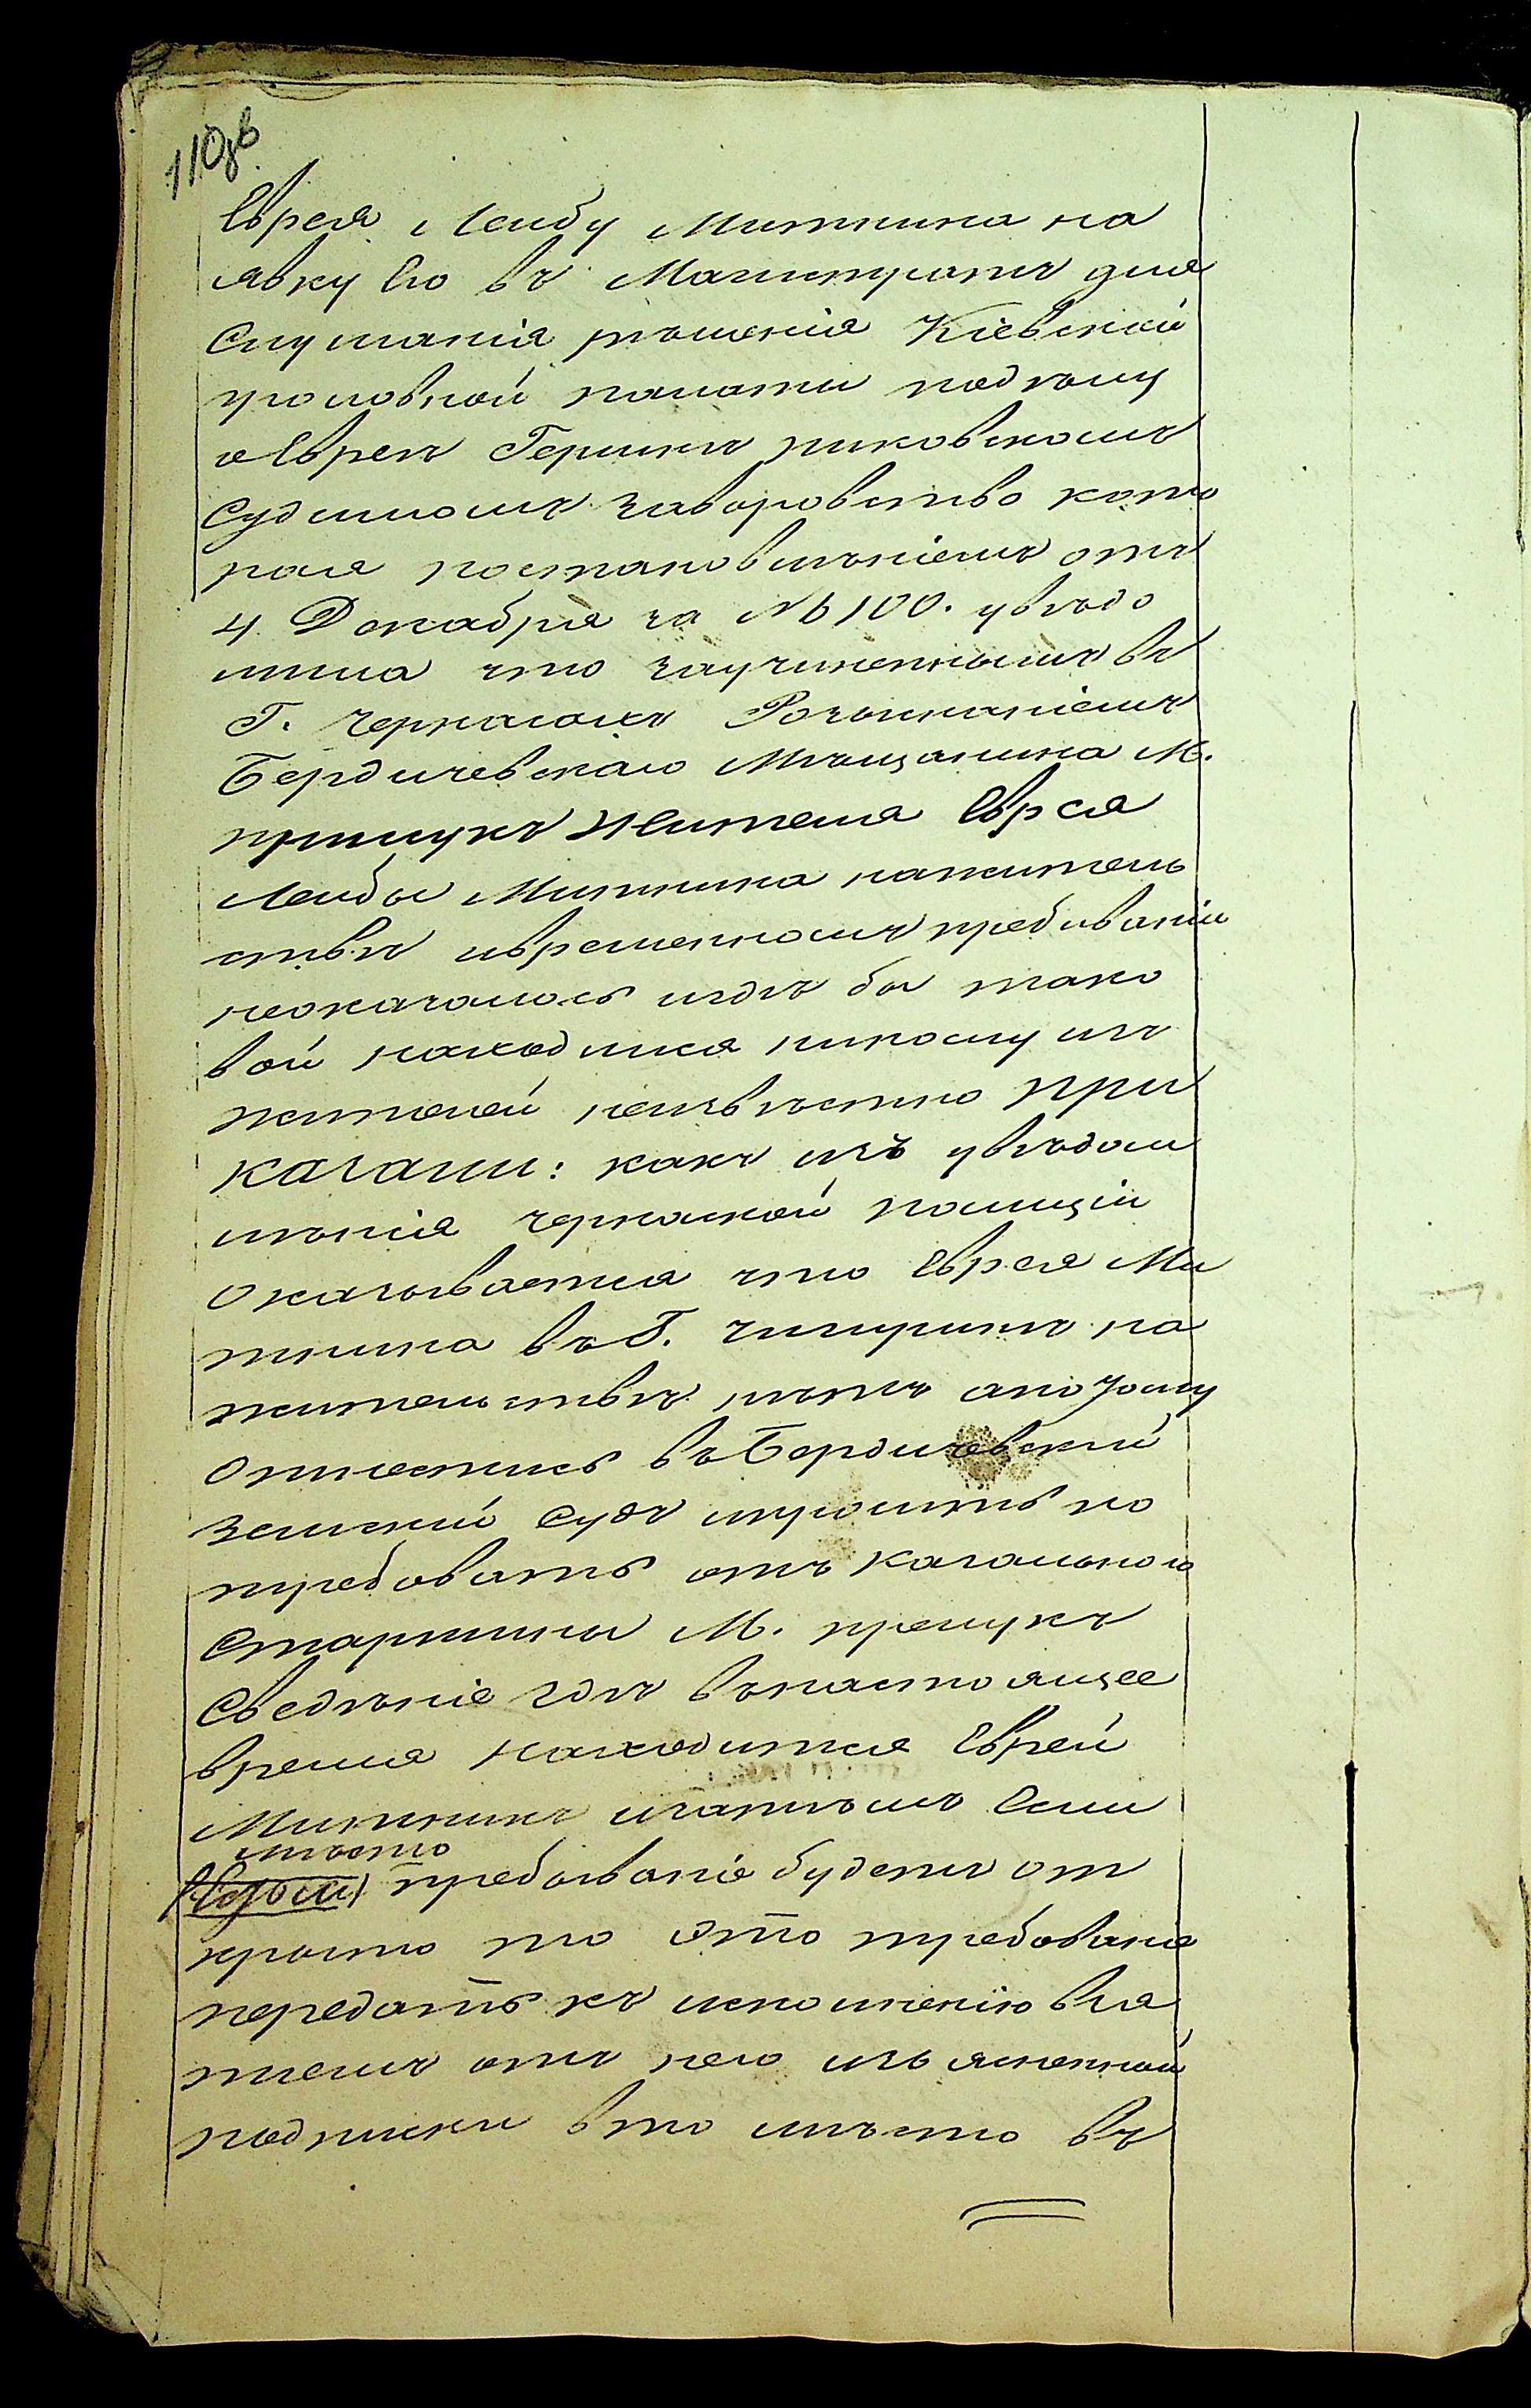 110зв
Еврея Лейбу Митника на
явку Его въ Магистратъ для
Слушанія рѣшенія Кіевской
уголовной палаты подѣлу
оЕвреѣ Гершкѣ
Судимомъ заворовство кото
рая постановленіемъ отъ
4 Декабря за № 100. увѣдо
мила что заучиненнымъ въ
Г. Черкасахъ Розысканіемъ
Бердичевскаго Мѣщанина М.
прилукъ Жителя Еврея
Лейбы Митника нажитель
ствѣ ивременномъ пребываніи
неоказалось игдѣ бы тако
вой находился никому изъ
жителей неизвѣстно При
казали: какъ изъ увѣдом
лѣнія Черкаской полиціи
Оказывается что Еврея Ми
тника въ Г. Чигиринѣ на
жительствѣ нѣтъ апотому
Отнестись въ Бердичевскій
Земскій Судъ ипросить по
требовать отъ Кагальнаго
Старшины М. прилукъ
Сведѣніе гдѣ внастоящее
время находится Еврей
Митникъ изатѣмъ Если
мѣсто
пребываніе будетъ от
крыто то Это требованіе
передать къ исполненію взя
тіемъ отъ него изъясненной
подписки вто мѣсто въ